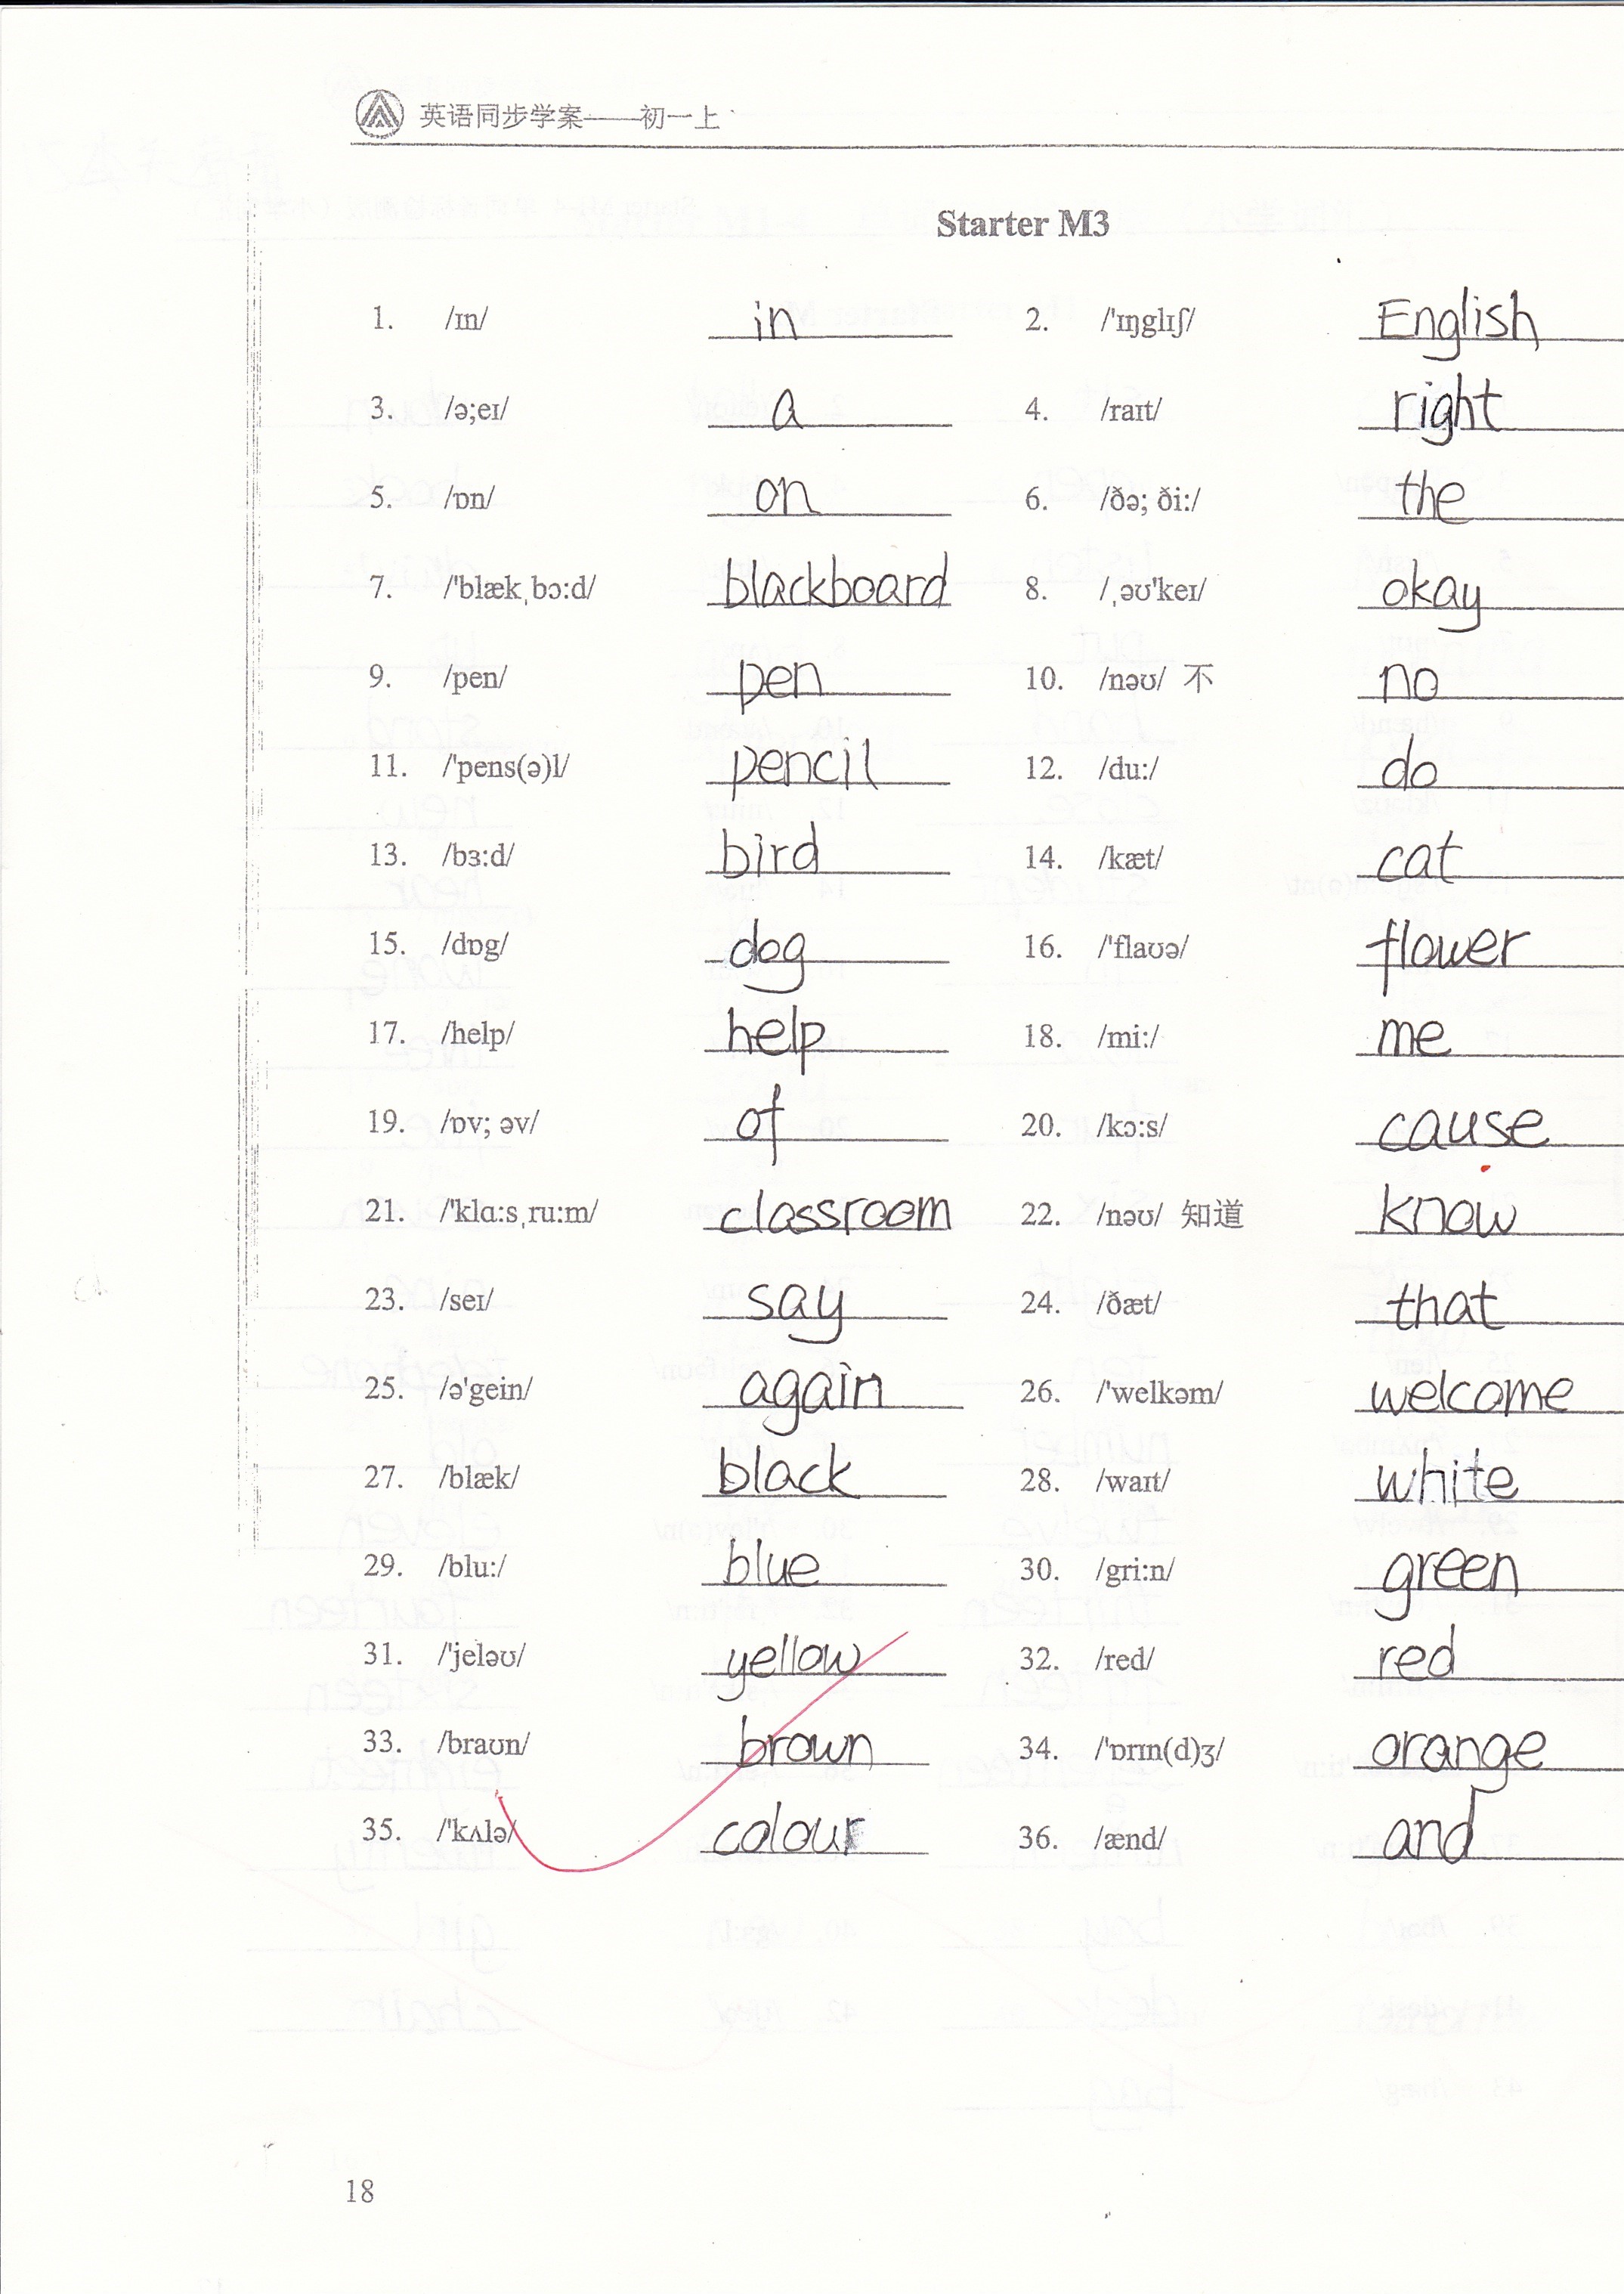 英语同步学案——初一上
Starter M3
1. /ɪn/ in 2. /'ɪŋglɪʃ/ English
3. /ə;eɪ/ a 4. /raɪt/ right
5. /ɒn/ on 6. /ðə; ði:/ the
7. /'blækˌbɔ:d/ blackboard 8. /ˌəʊ'keɪ/ okay
9. /pen/ pen 10. /nəʊ/ 不 no
11. /'pens(ə)l/ pencil 12. /du:/ do
13. /bɜ:d/ bird 14. /kæt/ cat
15. /dɒg/ dog 16. /'flaʊə/ flower
17. /help/ help 18. /mi:/ me
19. /ɒv; əv/ of 20. /kɔ:s/ cause
21. /'klɑ:sˌru:m/ classroom 22. /nəʊ/ 知道 know
23. /seɪ/ say 24. /ðæt/ that
25. /ə'gein/ again 26. /'welkəm/ welcome
27. /blæk/ black 28. /waɪt/ white
29. /blu:/ blue 30. /gri:n/ green
31. /'jeləʊ/ yellow 32. /red/ red
33. /braʊn/ brown 34. /'ɒrɪn(d)ʒ/ orange
35. /'kʌlə/ colour 36. /ænd/ and
18